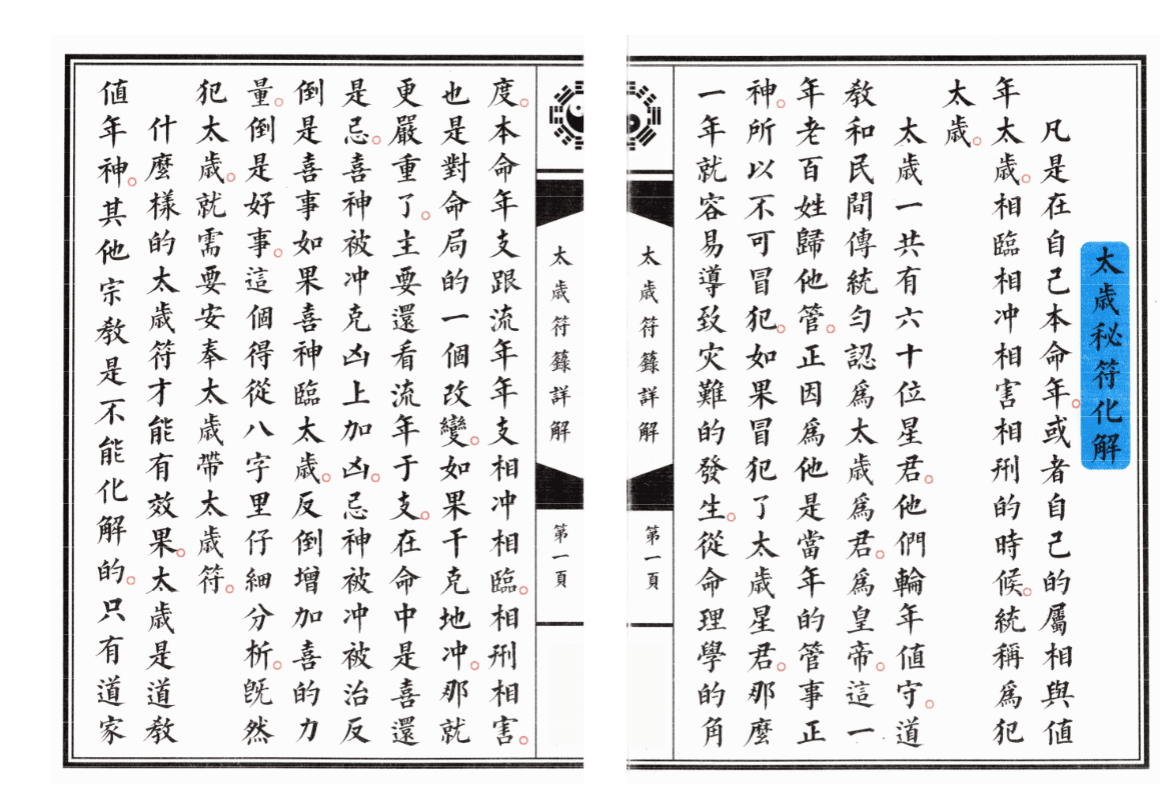 太歲秘符化解
凡是在自己本命年。或者自己的屬相與值
年太歲。相臨相冲相害相刑的時候。統稱爲犯
太歲。
太歲一共有六十位星君。他們輪年值守。道
教和民間傳統勻認爲太歲爲君。爲皇帝。這一
年老百姓歸他管。正因爲他是當年的管事正
神。所以不可冒犯。如果冒犯了太歲星君。那麼
一年就容易導致灾難的發生。從命理學的角
太歲符籙詳解
第一頁
太歲符籙詳解
第一頁
度。本命年支跟流年年支相冲相臨。相刑相害。
也是對命局的一個改變。如果干克地冲。那就
更嚴重了。主要還看流年于支。在命中是喜還
是忌。喜神被冲克凶上加凶。忌神被冲被治反
倒是喜事如果喜神臨太歲。反倒增加喜的力
量。倒是好事。這個得從八字里仔細分析。既然
犯太歲。就需要安奉太歲帶太歲符。
什麼樣的太歲符才能有效果。太歲是道教
值年神。其他宗教是不能化解的。只有道家